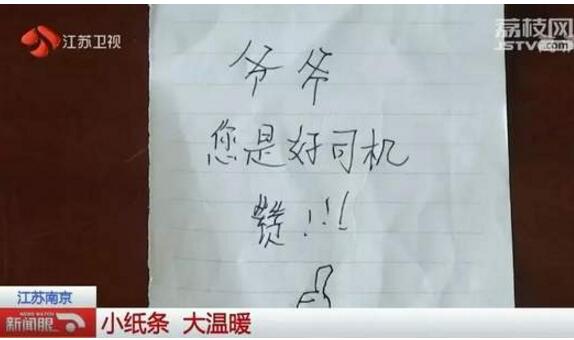 江苏卫视
荔枝网
JSTV.com
爷爷
您是好司机
赞!!!
江苏南京
新闻眼
小纸条 大温暖